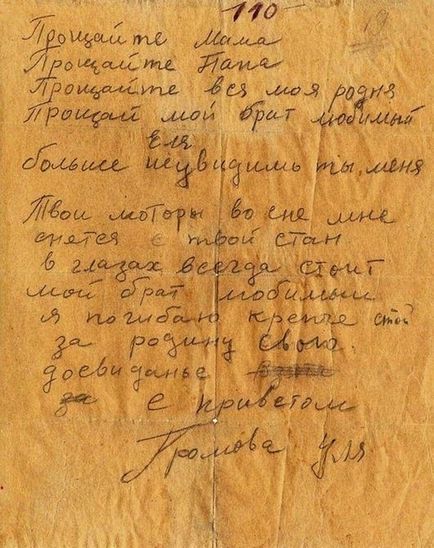 110
19
Прощайте Мама
Прощайте Папа
Прощайте вся моя родня
Прощай мой брат любимый
Еля
больше неувидишь ты, меня
Твои моторы во сне мне
снется твой стан
в глазах всегда стоит
мой брат любимый
я погибаю крепче стой
за родину свою.
досвиданье
за с приветом
Громова Уля